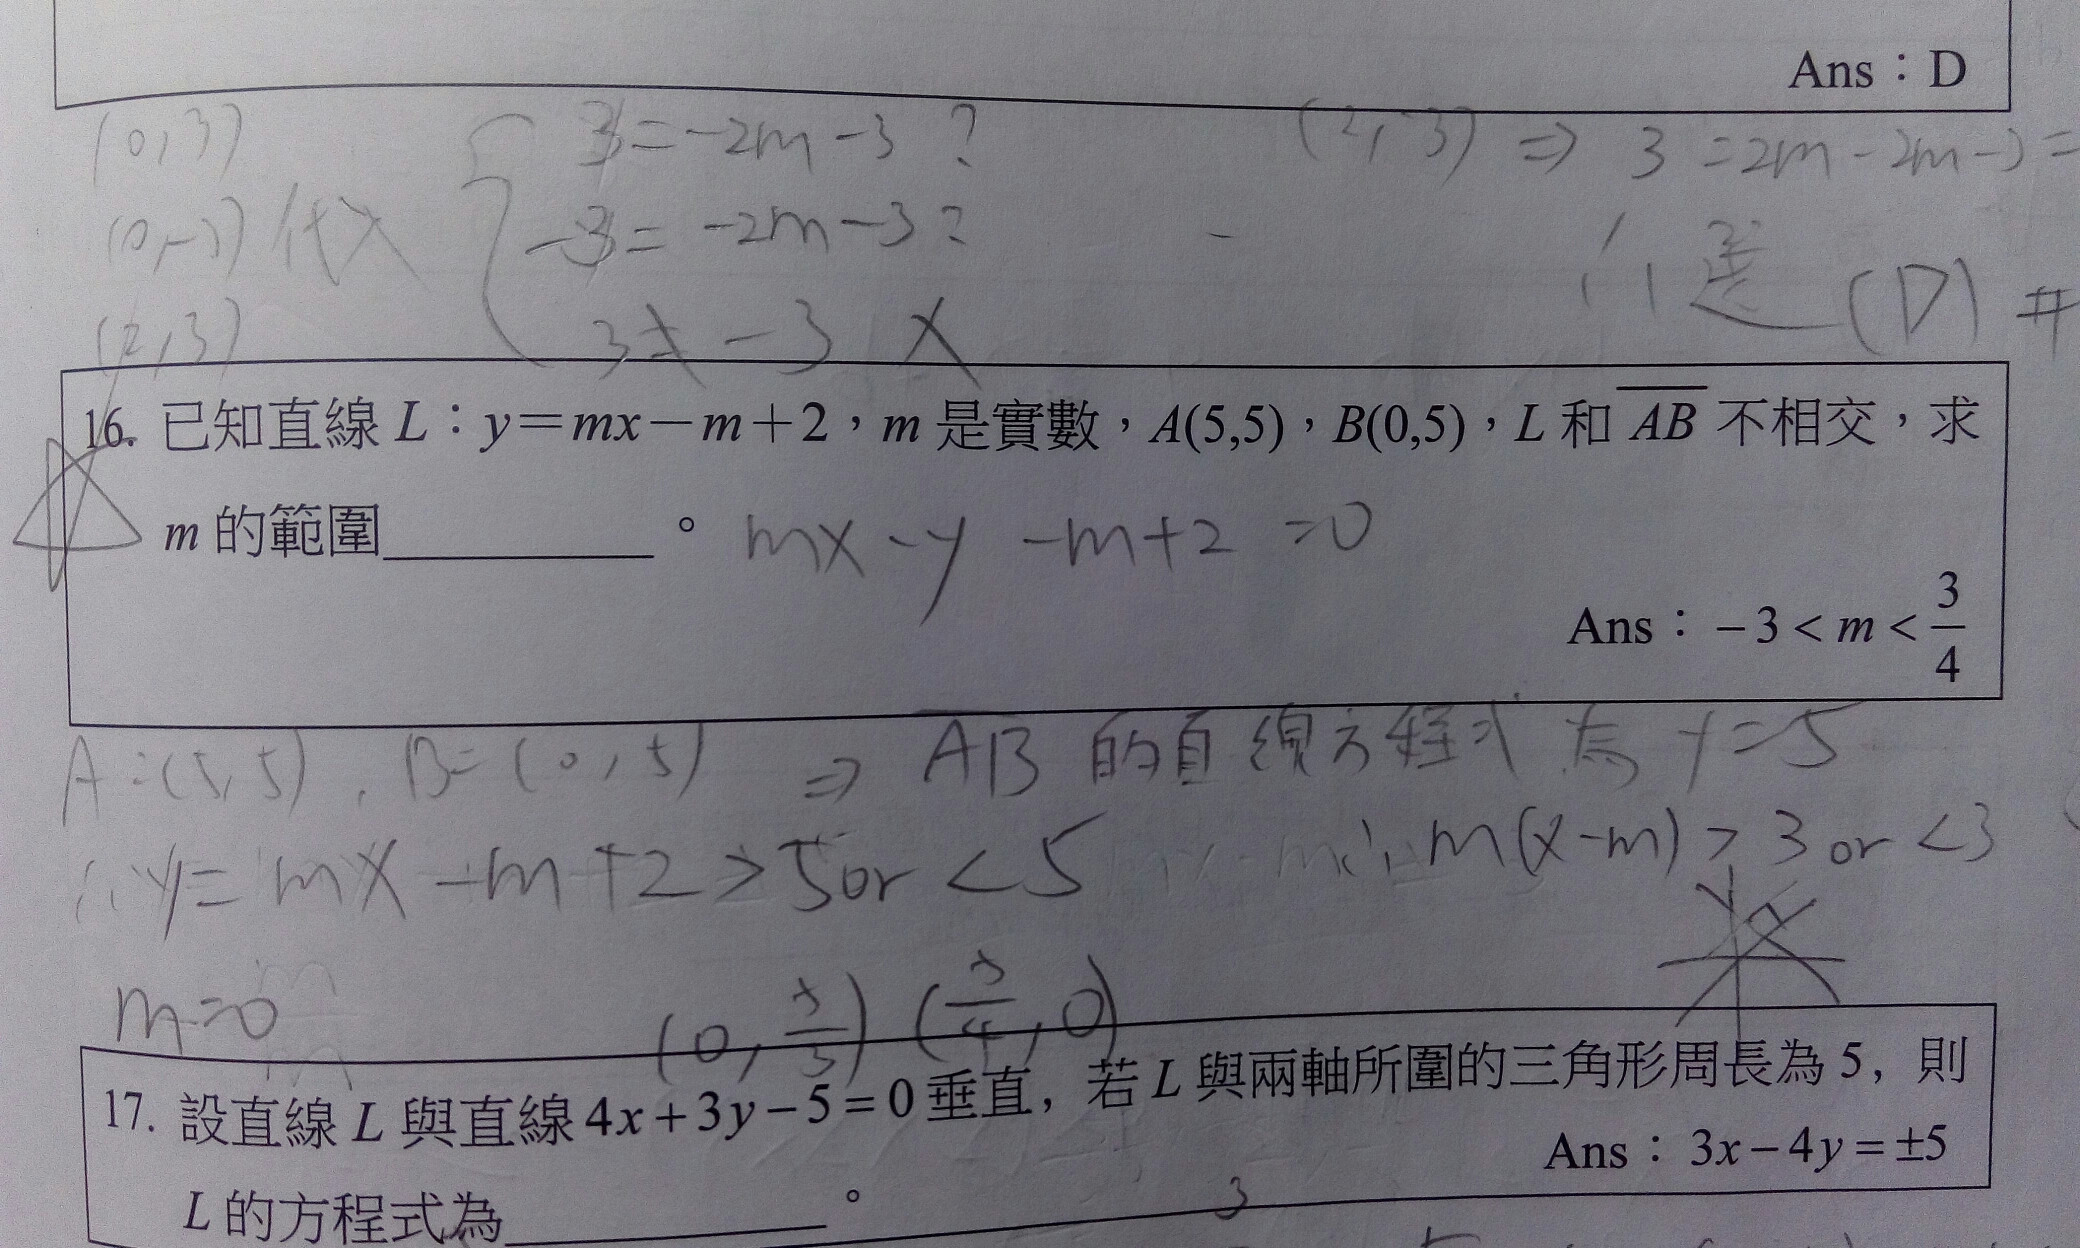 Ans：D
(0,3) 3=-2m-3 ? (2,3) ⇒ 3=2m-2m-3=
(0,-3) 代入 -3=-2m-3?
(2,3) 3≠-3 X 選 (D) #
16. 已知直線 L：y＝mx－m＋2，m 是實數，A(5,5)，B(0,5)，L 和 A̅B̅ 不相交，求
m 的範圍________。 mx-y-m+2=0
Ans：－3 < m < 3/4
A=(5,5), B=(0,5) ⇒ A̅B̅ 的直線方程式為 y=5
∴y=mx-m+2>5 or <5 ∴m(x-m)>3 or <3
m=0 (0,5/3) (5/4,0)
17. 設直線 L 與直線 4x+3y−5=0 垂直，若 L 與兩軸所圍的三角形周長為 5，則
Ans：3x−4y=±5
L 的方程式為__________。 3